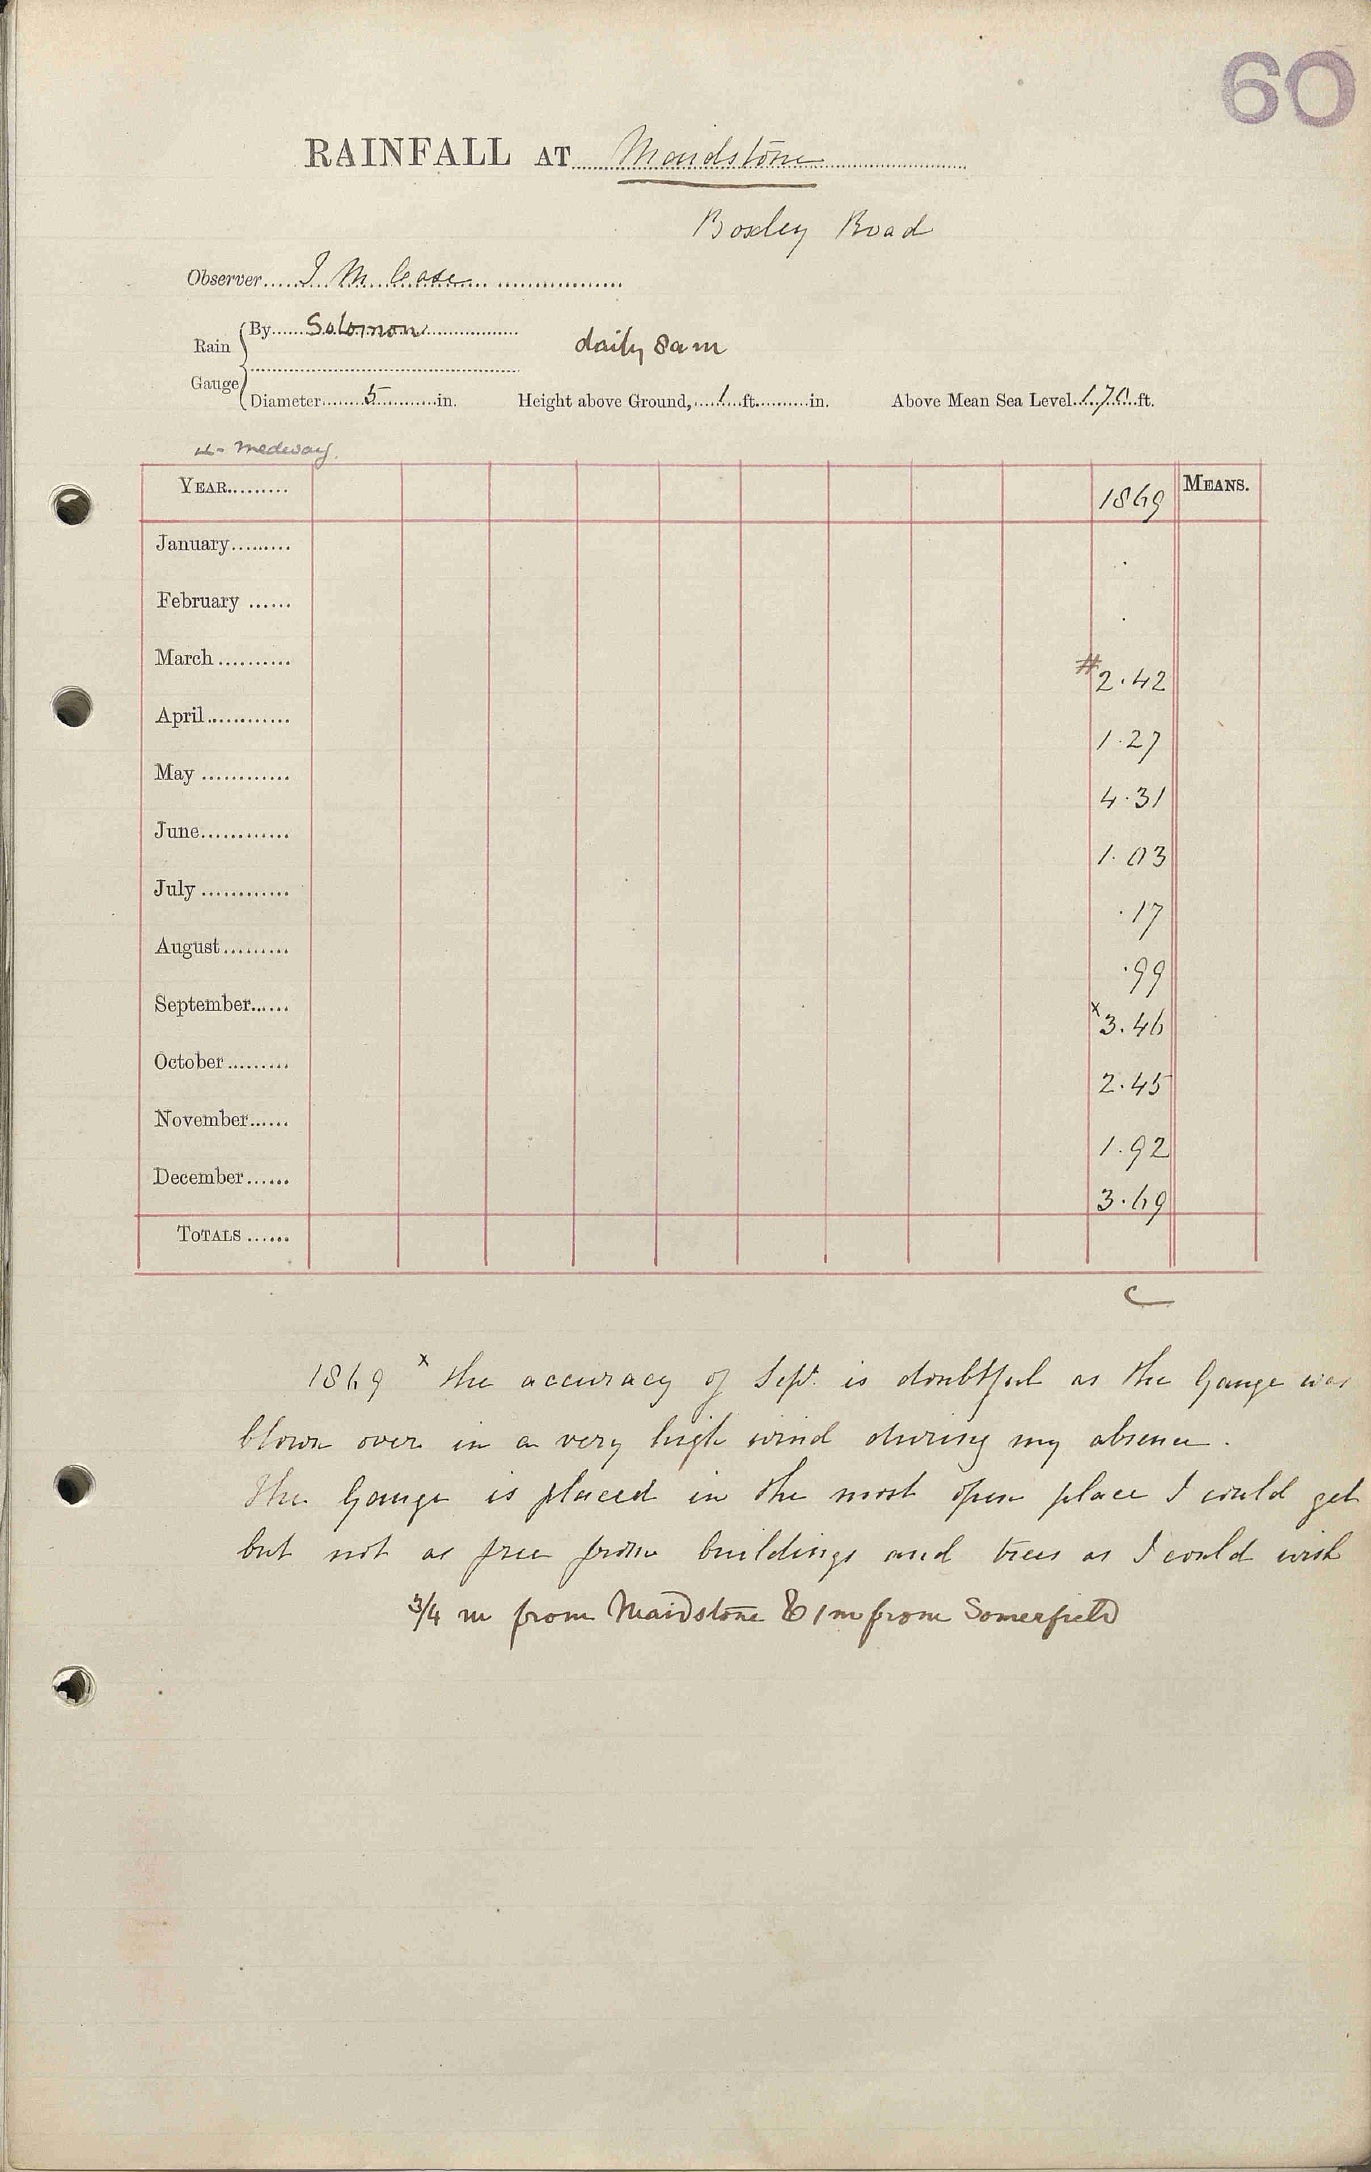 60
RAINFALL AT Maidstone
Boxley Road
Observer I M Case
Rain Gauge By Solomon
daily 8am
Diameter 5 in. Height above Ground, 1 ft. in. Above Mean Sea Level 170 ft.
Medway
YEAR 1869 MEANS.
January .
February .
March #2.42
April 1.27
May 4.31
June 1.03
July .17
August .99
September x3.46
October 2.45
November 1.92
December 3.69
TOTALS
C
1869 x the accuracy of Sept. is doubtful as the Gauge was
blown over in a very high wind during my absence.
The Gauge is placed in the most open place I could get
but not as free from buildings and trees as I could wish
3/4 m from Maidstone & 1m from Somerfield